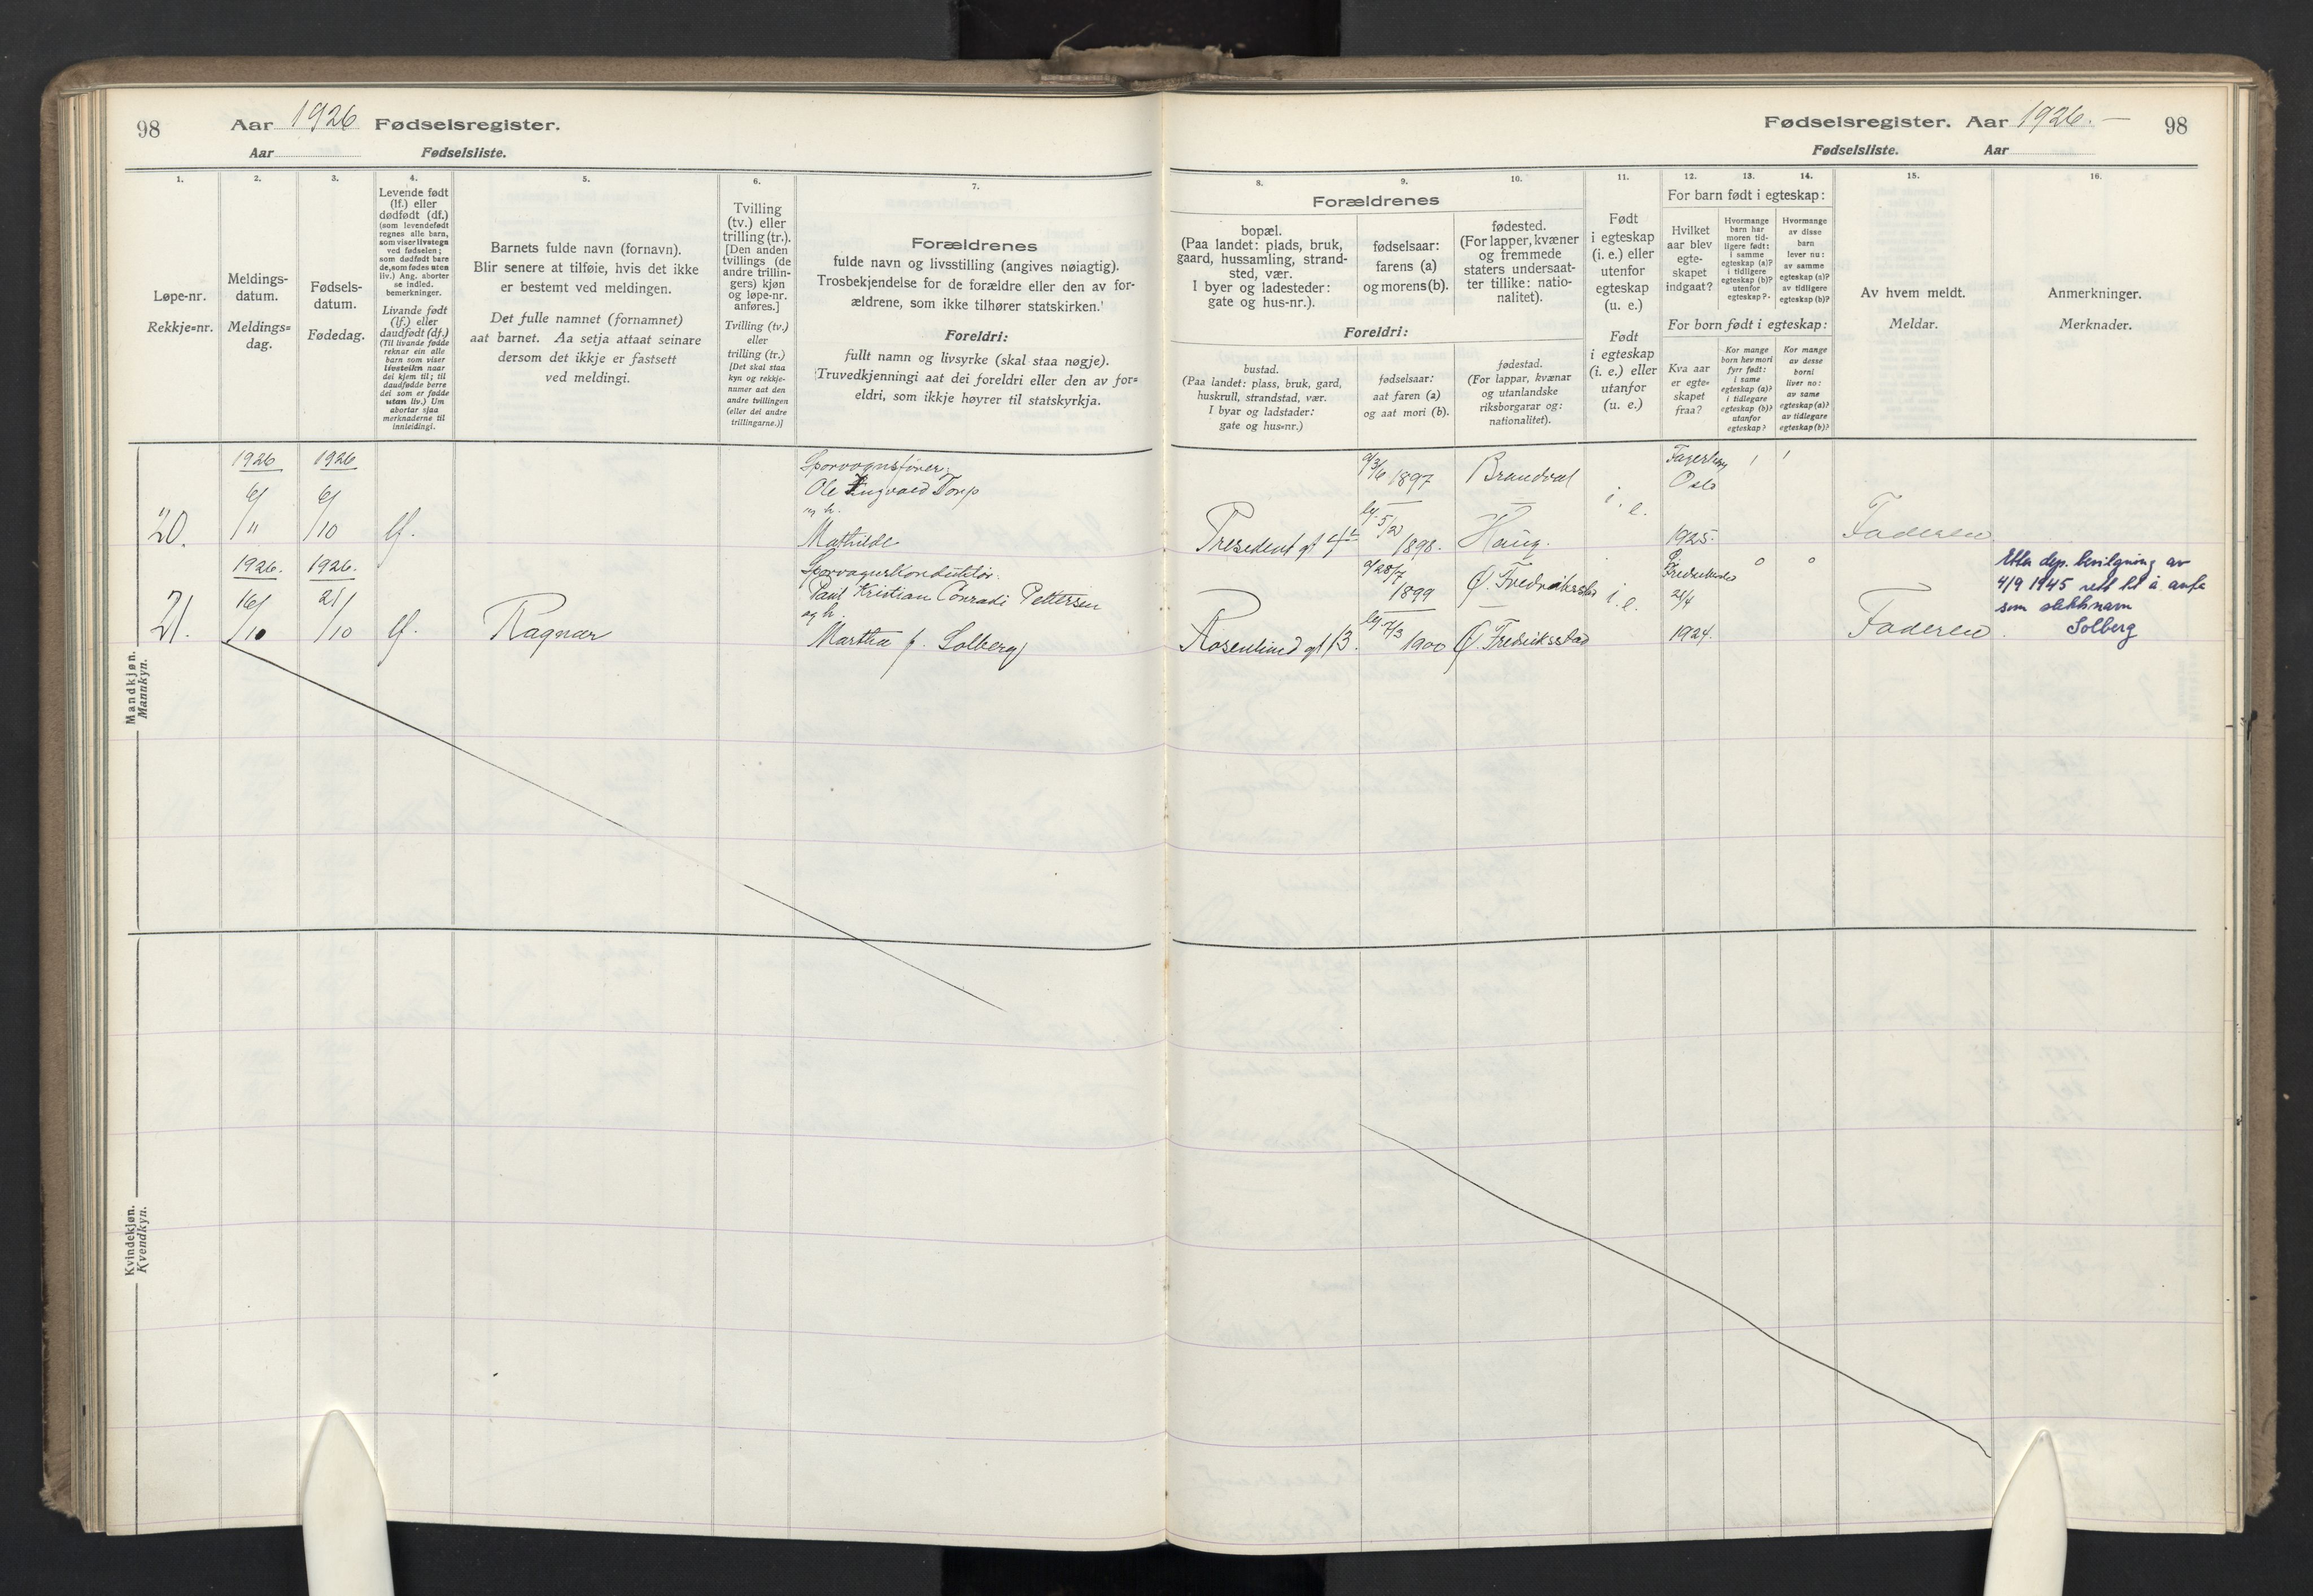 98
Aar 1926 Fødselsregister.
Aar Fødselsliste.
1.
Løpe-nr.
Rekkje=nr.
2.
Meldings-
datum.
Meldings=
dag.
3.
Fødsels-
datum.
Fødedag.
4.
Levende født
(lf.) eller
dødfødt (df.)
(som levendefødt
regnes alle barn,
som viser livstegn
ved fødselen;
som dødfødt bare
de, som fødes uten
liv.) Ang. aborter
se indled.
bemerkninger.
Livande født
(lf.) eller
daudfødt (df.)
(Til livande fødde
reknar ein alle
barn som viser
livsteikn naar
dei kjem til; til
daudfødde berre
dei som er fødde
utan liv.) Um
abortar sjaa
merknaderne til
innleidingi.
5.
Barnets fulde navn (fornavn).
Blir senere at tilføie, hvis det ikke
er bestemt ved meldingen.
Det fulle namnet (fornamnet)
aat barnet. Aa setja attaat seinare
dersom det ikkje er fastsett
ved meldingi.
6.
Tvilling
(tv.) eller
trilling (tr.).
[Den anden
tvillings (de
andre trillin-
gers) kjøn
og løpe-nr.
anføres.]
Tvilling (tv.)
eller
trilling (tr.)
[Det skal staa
kyn og rekkje-
numer aat den
andre tvillingen
(eller dei andre
trillingarne.)]
7.
Forældrenes
fulde navn og livsstilling (angives nøiagtig).
Trosbekjendelse for de forældre eller den av for-
ældrene, som ikke tilhører statskirken.
Foreldri:
fullt namn og livsyrke (skal staa nøgje).
Truvedkjenningi aat dei foreldri eller den av for=
eldri, som ikkje høyrer til statskyrkja.
Mandkjøn.
Mannkyn.
20.
1926
6/11
1926
6/10
lf.
Sporvognsfører
Ole Ingvald Torp
og h.
Mathilde
21.
1926.
16/10
1926.
21/10
lf.
Ragnar
Sporvognskonduktør
Paul Kristian Conradi Pettersen
og h.
Martha f. Solberg
Kvindekjøn.
Kvendkyn.
Fødselsregister. Aar 1926.
98
Fødselsliste. Aar
Forældrenes
8.
bopæl.
(Paa landet: plads, bruk,
gaard, hussamling, strand-
sted, vær.
I byer og ladesteder:
gate og hus-nr.).
9.
fødselsaar:
farens (a)
og morens (b).
10.
fødested.
(For lapper, kvæner
og fremmede
staters undersaat-
ter tillike: natio-
nalitet).
Foreldri:
bustad.
(Paa landet: plass, bruk, gard,
huskrull, strandstad, vær.
I byar og ladstader:
gate og hus=nr.)
fødselsaar:
aat faren (a)
og aat mori (b).
fødestad.
(For lappar, kvænar
og utanlandske
riksborgarar og:
nationalitet).
11.
Født
i egteskap
(i. e.) eller
utenfor
egteskap
(u. e.)
Født
i egteskap
(i. e.) eller
utanfor
egteskap
(u. e.)
12.
13.
14.
For barn født i egteskap:
Hvilket
aar blev
egte-
skapet
indgaat?
Hvormange
barn har
moren tid-
ligere født:
i samme
egteskap (a)?
i tidligere
egteskap (b)?
utenfor
egteskap?
Hvormange
av disse
barn
lever nu:
av samme
egteskap (a)?
av tidligere
egteskap (b)?
For born født i egteskap:
Kva aar
er egte=
skapet
fraa?
Kor mange
born hev mori
fyrr født:
i same
egteskap (a)?
i tidlegare
egteskap (b)?
utanfor
egteskap?
Kor mange
av desse
borni
liver no:
av same
egteskap (a)?
av tidlegare
egteskap (b)?
15.
Av hvem meldt.
Meldar.
16.
Anmerkninger.
Merknader.
President gt 4
a/ 3/6 1897
b/ 5/2 1898.
Brandval
Haug.
i. e.
Fagerborg
Oslo
1925.
1
1
Faderen
Rosenlund gt 13.
a/ 28/7 1899
b/ 7/3 1900
Ø. Fredrikstad
Ø. Fredriksstad
i. e.
21/4
1924.
0
0
Faderen
Etter dep. bevilgning av
4/9 1945 rett til å anta
som slektsnavn
Solberg